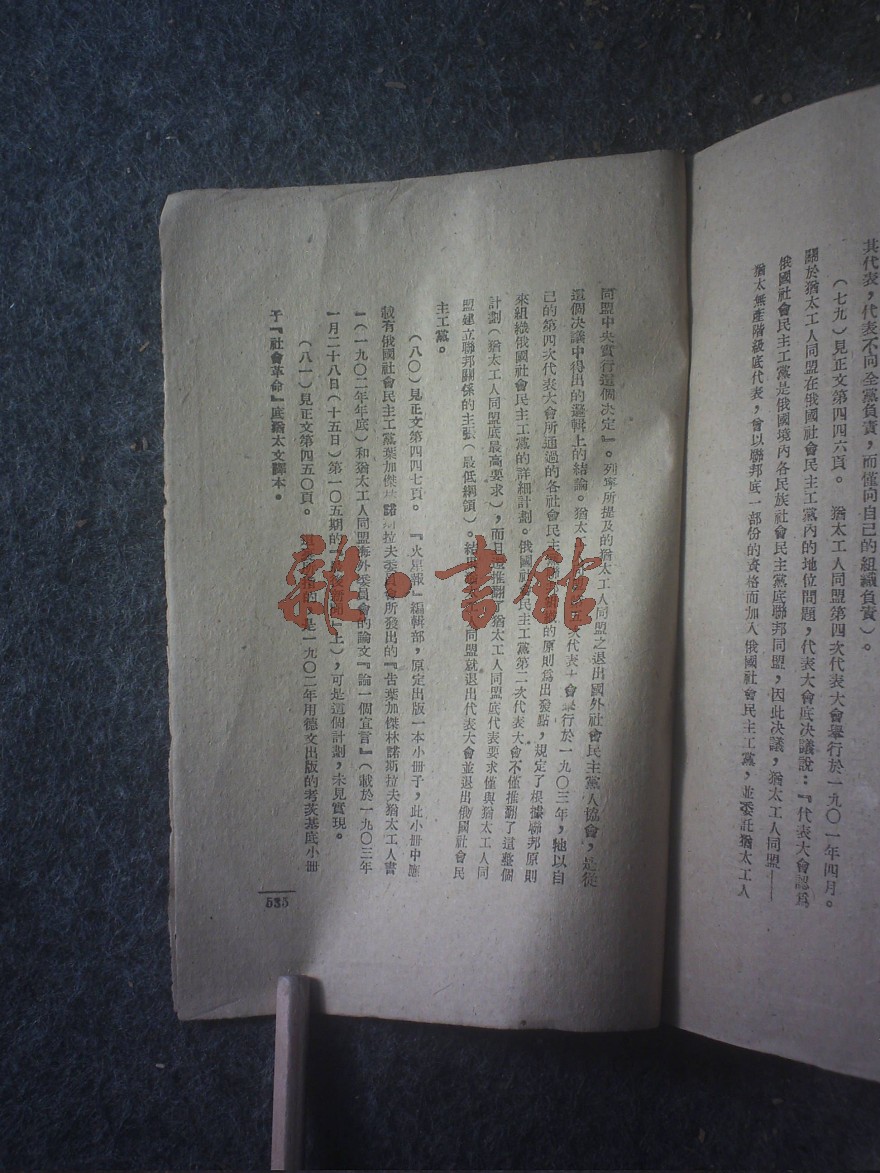 其代表，代表不向全黨負責，而僅向自己的組織負責）。
（七九）見正文第四四六頁。 猶太工人同盟第四次代表大會舉行於一九〇一年四月。
關於猶太工人同盟在俄國社會民主工黨內的地位問題，代表大會底決議說：『代表大會認爲，
俄國社會民主工黨是俄國境內各民族社會民主黨底聯邦同盟，因此決議，猶太工人同盟——
猶太無產階級底代表，會以聯邦底一部份的資格而加入俄國社會民主工黨，並委託猶太工人
同盟中央實行這個決定』。列寧所提及的猶太工人同盟之退出國外社會民主黨人協會，是從
這個決議中得出的邏輯上的結論。猶太 次代表大會舉行於一九〇三年，牠以自
己的第四次代表大會所通過的各社會民主 的原則爲出發點，規定了根據聯邦原則
來組織俄國社會民主工黨的詳細計劃。俄國社會民主工黨第二次代表大會不僅推翻了這整個
計劃（猶太工人同盟底最高要求），而且還推翻了猶太工人同盟底代表要求僅與猶太工人同
盟建立聯邦關係的主張（最低綱領）。結 同盟就退出代表大會並退出俄國社會民
主工黨。
（八〇）見正文第四四七頁。 『火星報』編輯部，原定出版一本小冊子，此小冊中應
載有俄國社會民主工黨葉加傑林諾斯拉夫委員會所發出的『告葉加傑林諾斯拉夫猶太工人書
』（一九〇二年年底）和猶太工人同盟海外委員會的論文『論一個宣言』（載於一九〇三年
一月二十八日（十五日）第一〇五期的 上），可是這個計劃，未見實現。
（八一）見正文第四五〇頁。 的 是一九〇二年用德文出版的考茨基底小冊
子『社會革命』底猶太文譯本。
535
雜·書館